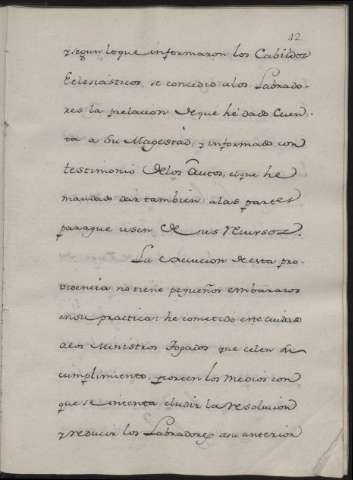 12
y segun lo que informaron los Cabildos
Eclesiasticos, se concedió a los Labrado-
res la relacion de que hé dado Cuen-
ta a Su Magestad, y informado con
testimonio de los Autos, el que he
mandado dar tambien a las partes
para que usen de sus recursos.
La execucion de esta pro-
videncia no tiene pequeños embarazos
en su practica: he cometido este cuidado
a los Ministros Togados que celen su
cumplimiento, y los medios con
que se intenta eludir la resolucion
y reducir los Labradores a su anterior